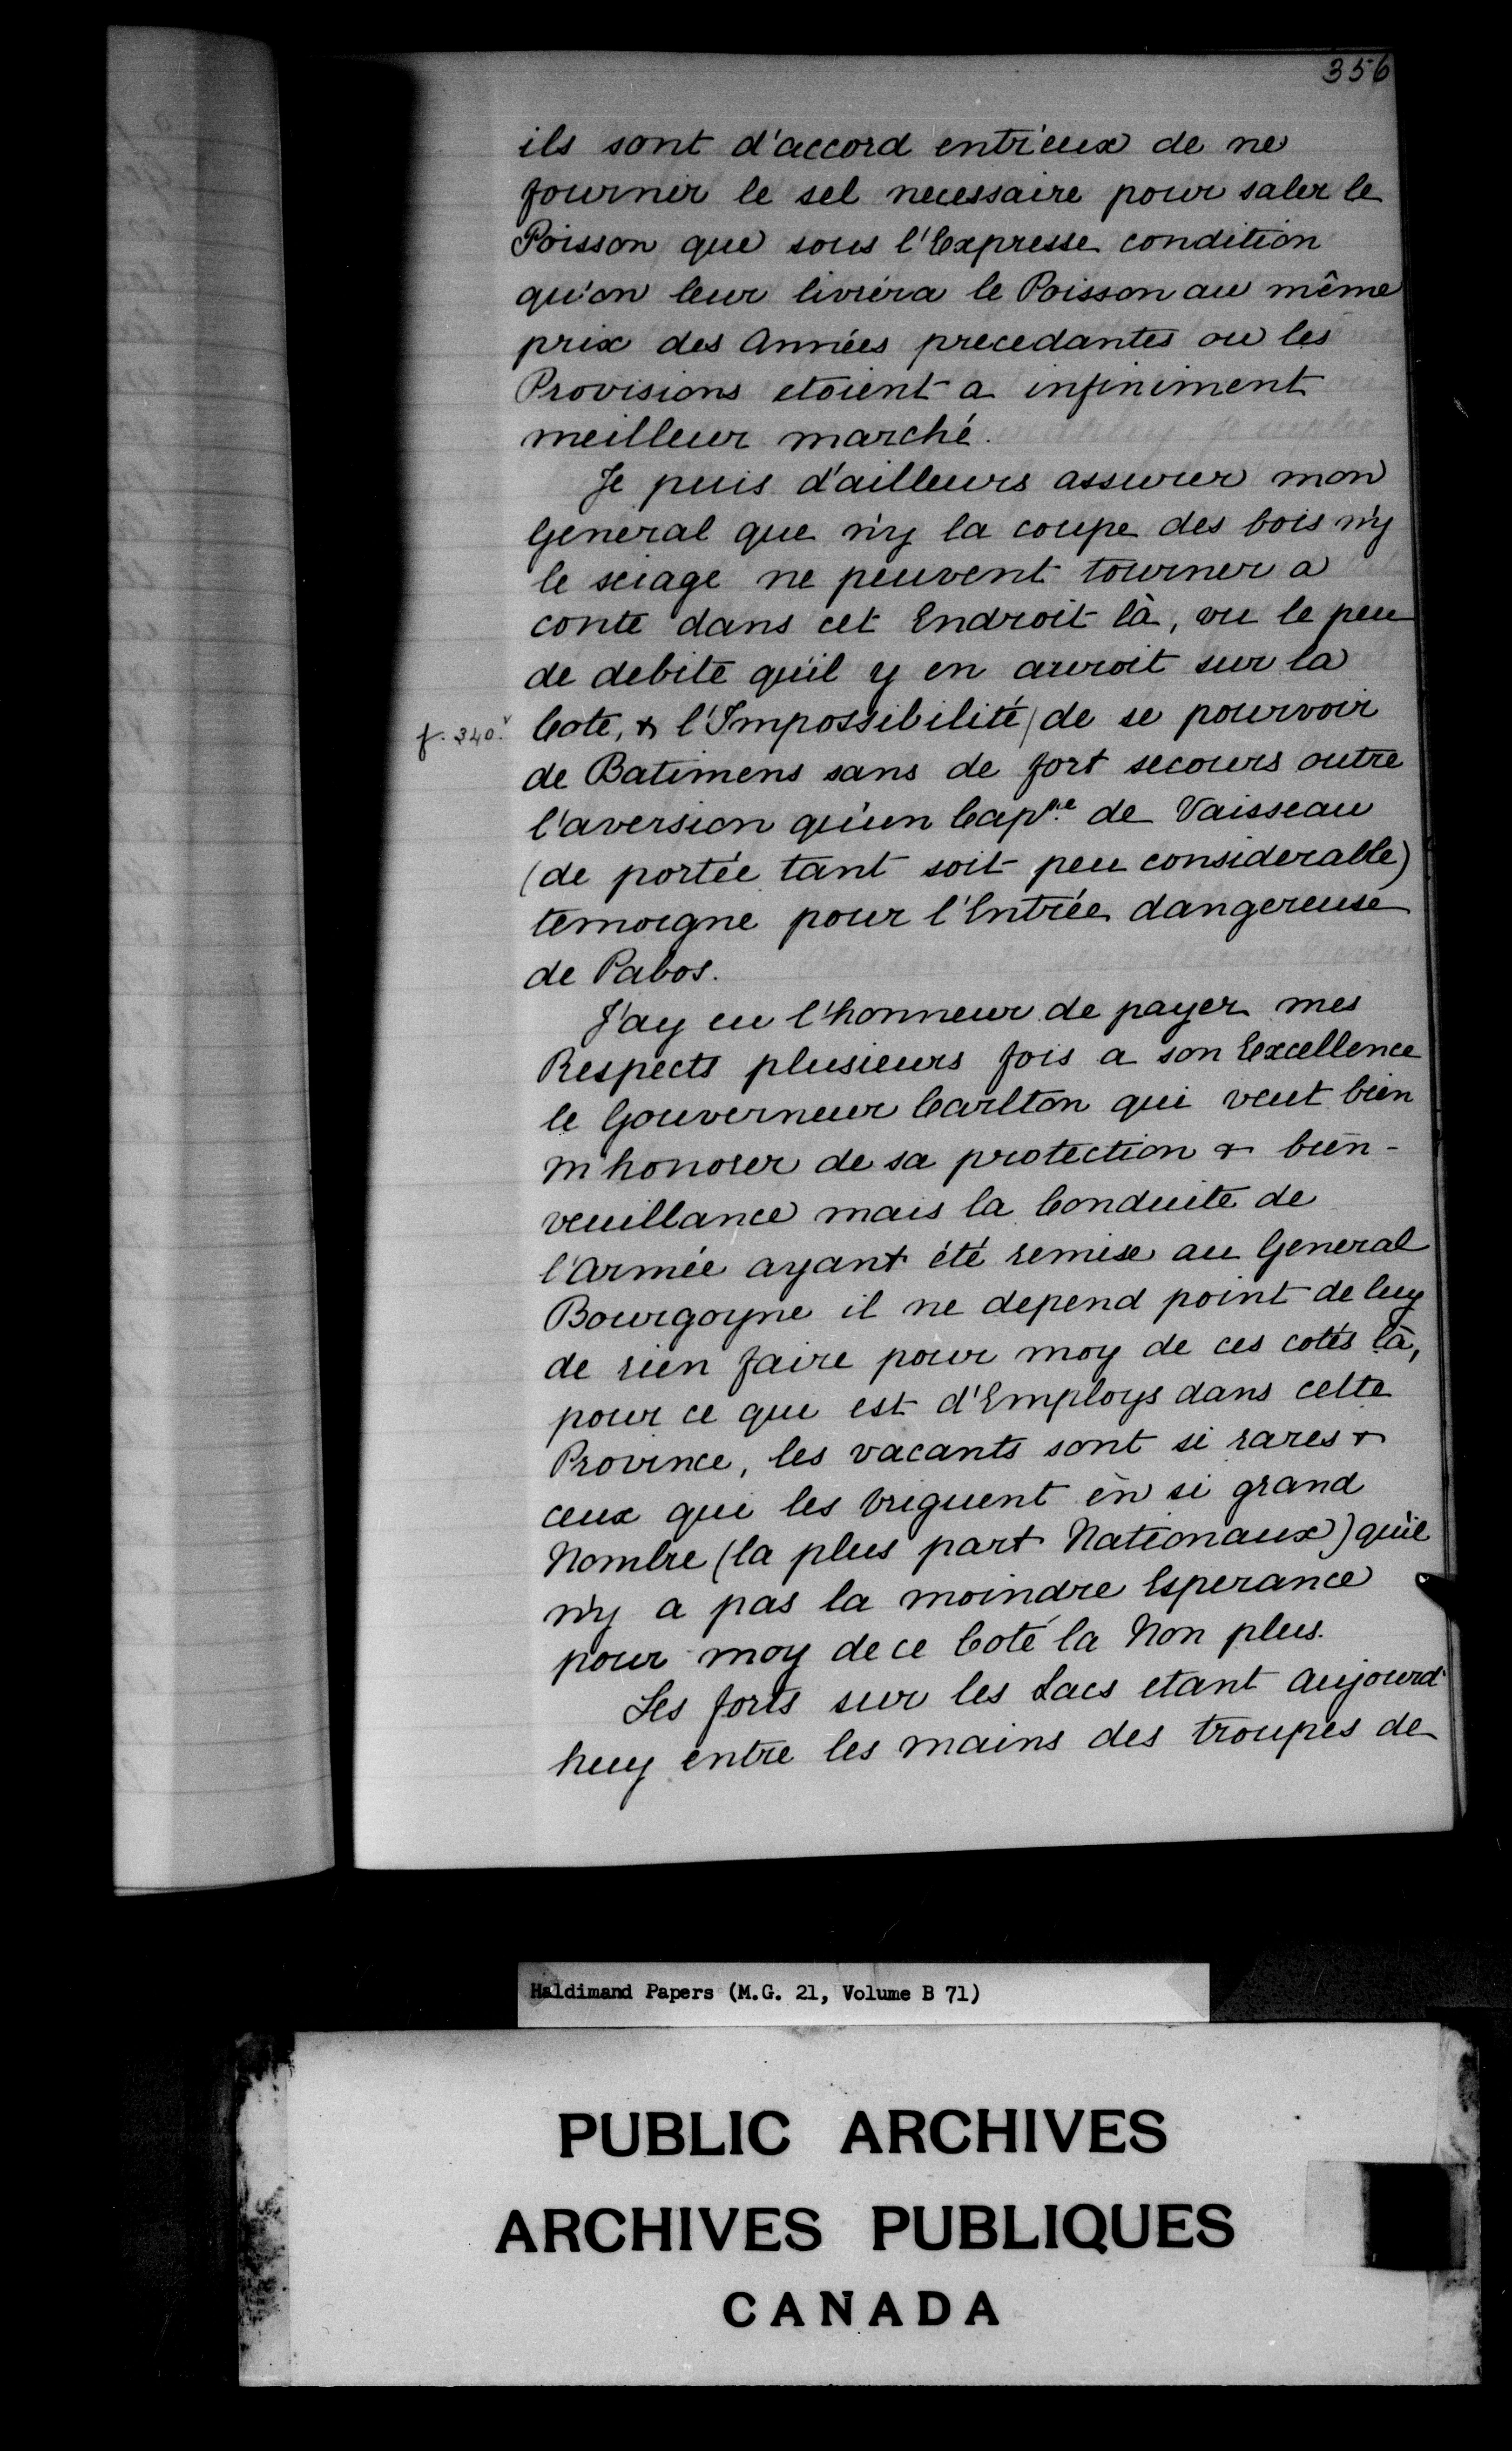 356
ils sont d'accord entr'eux de ne
fournir le sel necessaire pour saler le
Poisson que sous l'Expresse condition
qu'on leur livrera le Poisson au même
prix des Années precedantes ou les
Provisions etoient a infiniment
meilleur marché.
Je puis d'ailleurs assurer mon
General que n'y la coupe des bois n'y
le sciage ne peuvent tourner a
conte dans cet Endroit là, vu le peu
de debite qu'il y en auroit sur la
f. 340.v Cote, & l'Impossibilité / de se pourvoir
de Batimens sans de fort secours outre
l'aversion qu'un Cap.ne de Vaisseau
(de portée tant soit peu considerable)
temoigne pour l'Entrée dangereuse
de Pabos.
J'ay eu l'honneur de payer mes
Respects plusieurs fois a son Excellence
le Gouverneur Carlton qui veut bien
m'honorer de sa protection & bien-
veuillance mais la Conduite de
l'Armée ayant été remise au General
Bourgoyne il ne depend point de luy
de rien faire pour moy de ces cotés là,
pour ce que est d'Employs dans cette
Province, les vacants sont si rares &
ceux qui les briguent en si grand
Nombre (la plus part Nationaux) qu'il
n'y a pas la moindre Esperance
pour moy de ce Coté la Non plus.
Les forts sur les Lacs etant Aujourd'
huy entre les mains des troupes de
Haldimand Papers (M.G. 21, Volume B 71)
PUBLIC ARCHIVES
ARCHIVES PUBLIQUES
CANADA